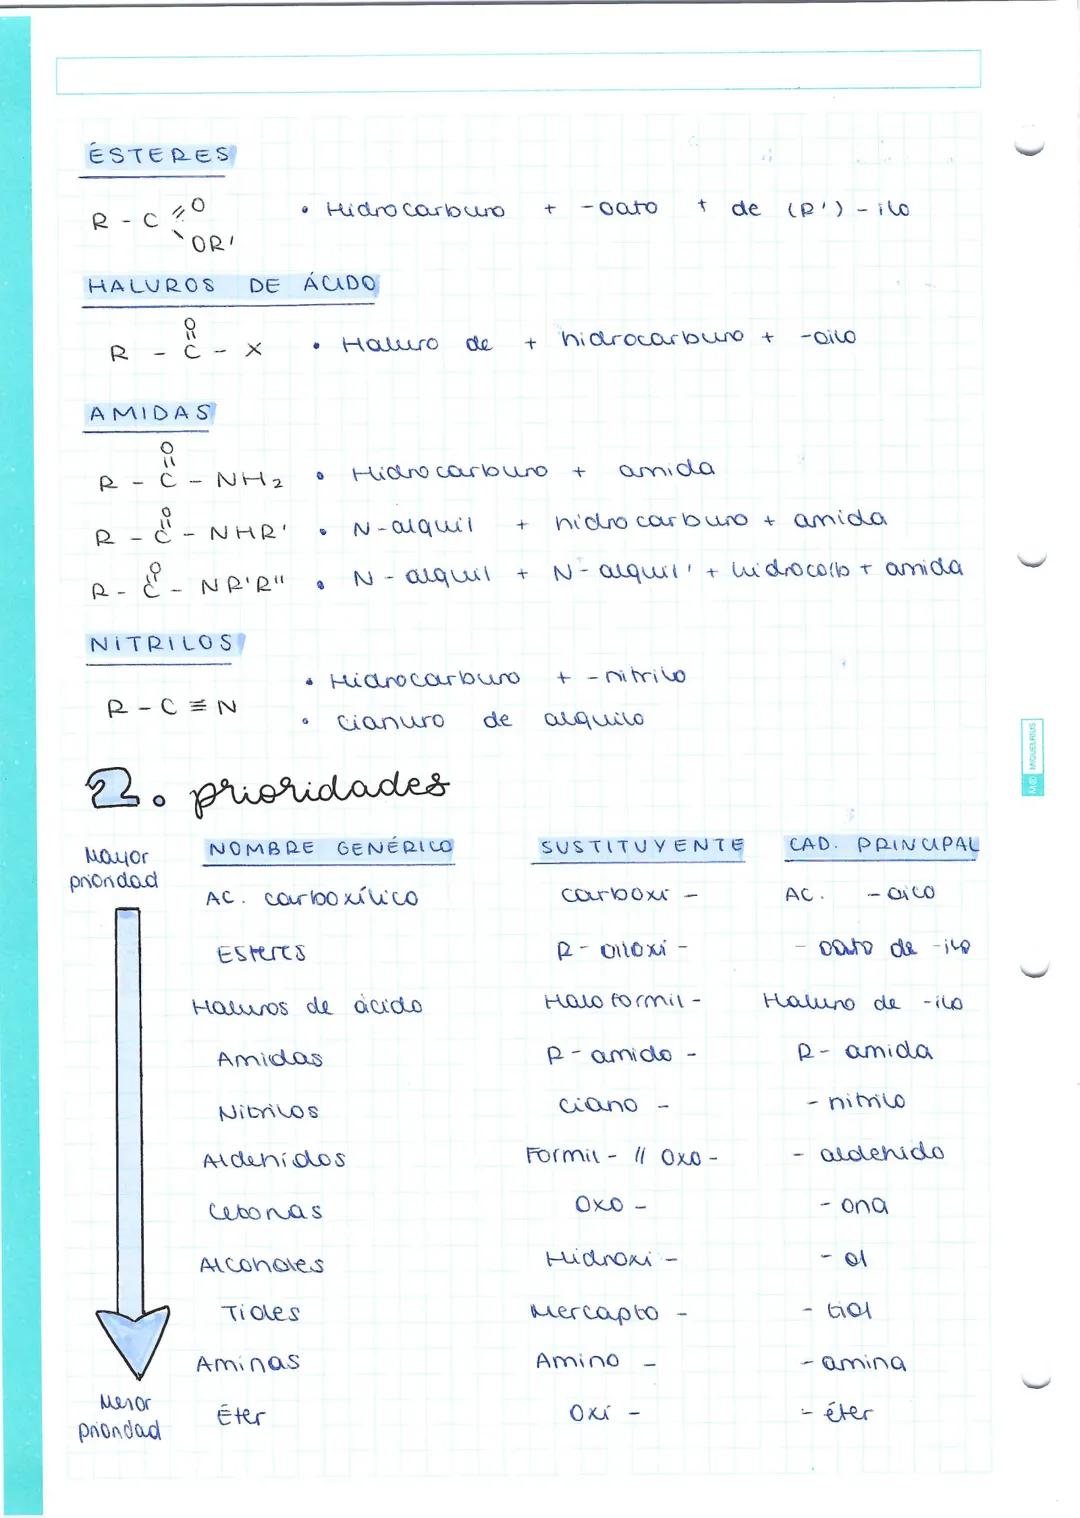 ÉSTERES
R - C =O OR' • Hidrocarburo + -oato + de (R') - ilo
HALUROS DE ÁCIDO
O
R - C - X • Haluro de + hidrocarburo + -oilo
AMIDAS
O
R - C - NH2 • Hidrocarburo + amida
O
R - C - NHR' • N-alquil + hidrocarburo + amida
O
R - C - NR'R'' • N - alquil + N- alquil' + hidrocarb + amida
NITRILOS
• Hidrocarburo + - nitrilo
R - C ≡ N
• cianuro de alquilo
2. prioridades
Mayor prioridad
NOMBRE GENÉRICO SUSTITUYENTE CAD. PRINCIPAL
AC. carboxílico carboxi - AC. - oico
Esteres R - iloxi - - oato de -ilo
Haluros de ácido Halo formil - Haluro de -ilo
Amidas R - amido - R - amida
Nitrilos ciano - - nitrilo
Aldehidos Formil - // Oxo - - aldehido
Cetonas Oxo - - ona
Alcoholes Hidroxi - - ol
Tioles Mercapto - - tiol
Aminas Amino - - amina
Éter Oxi - - éter
Menor prioridad
MIQUELRIUS